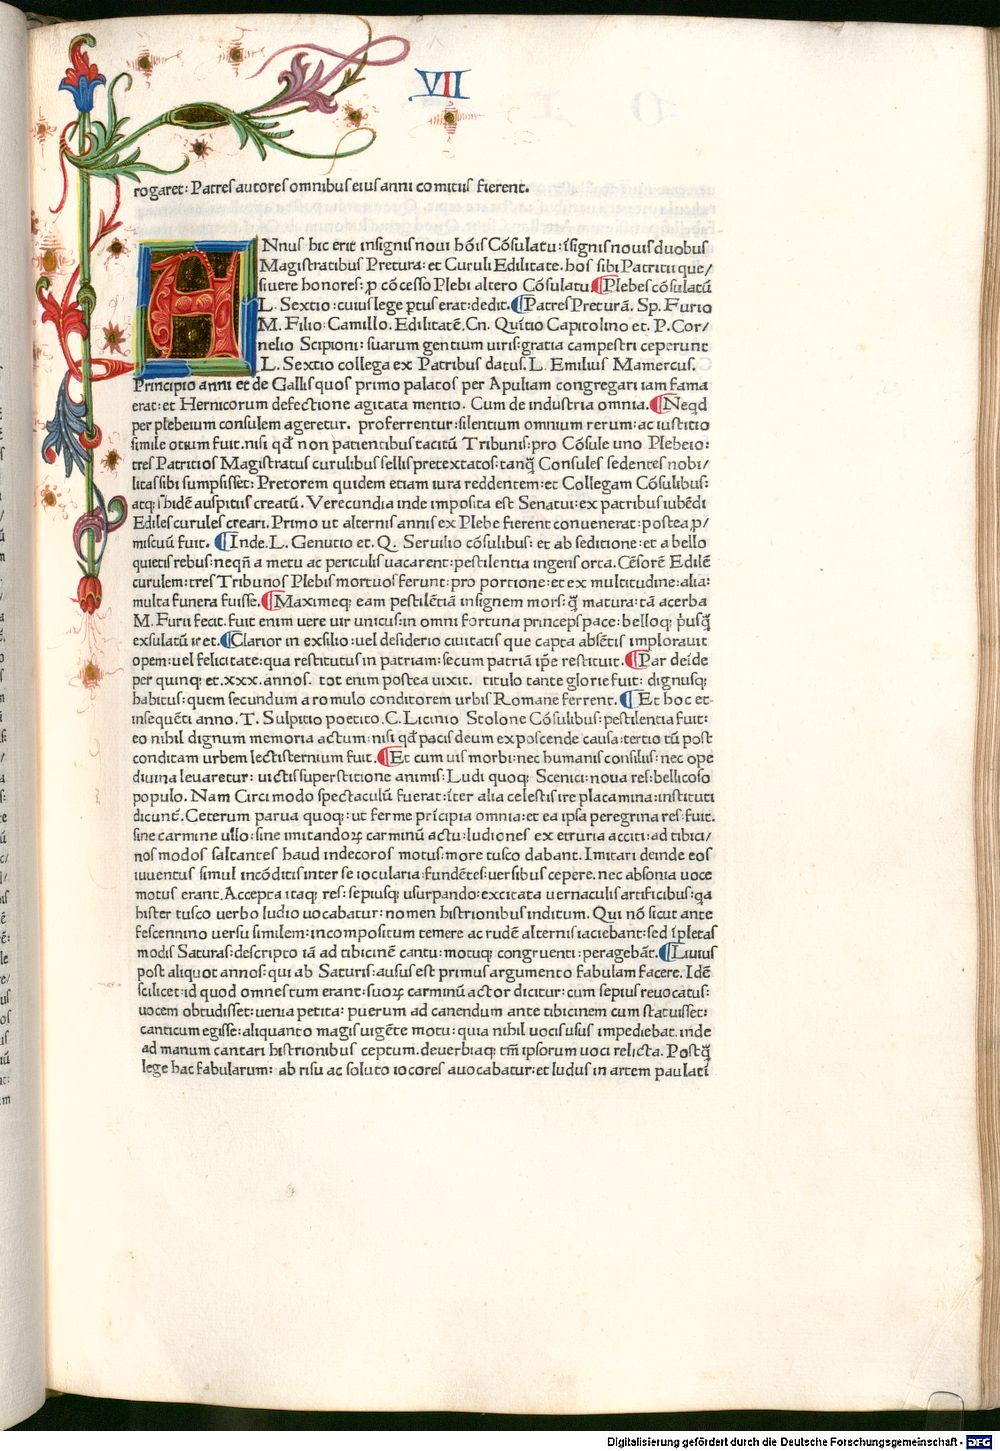 VII
rogaret: Patres autores omnibus eius anni comitiis fierent.
ANnus hic erit insignis noui hōis Cōsulatu: īsignis nouis duobus
Magistratibus Pretura: et Curuli Edilitate. hos sibi Patritii que/
siuere honores: ꝓ cōcesso Plebi altero Cōsulatu ¶Plebes cōsulatū
L. Sextio: cuius lege ꝑtus erat: dedit. ¶Patres Preturā. Sp. Furio
M. Filio: Camillo. Edilitatē. Cn. Quītio Capitolino et. P. Cor/
nelio Scipioni: suarum gentium uiris: gratia campestri ceperunt
L. Sextio collega ex Patribus datus. L. Emilius Mamercus.
Principio anni et de Gallis quos primo palatos per Apuliam congregari iam fama
erat: et Hernicorum defectione agitata mentio. Cum de industria omnia. ¶Neqd
per plebeium consulem ageretur. proferrentur: silentium omnium rerum: ac iustitio
simile otium fuit. nisi qđ non patientibus tacitū Tribunis: pro Cōsule uno Plebeio:
tres Patritios Magistratus curulibus sellis pretextatos: tanq̄ Consules sedentes nobi/
litas sibi sumpsisset: Pretorem quidem etiam iura reddentem: et Collegam Cōsulibus:
atq; iisdē auspitiis creatū. Verecundia inde imposita est Senatui: ex patribus iubēdi
Ediles curules creari. Primo ut alternis annis ex Plebe fierent conuenerat: postea ꝓ/
miscuū fuit. ¶Inde. L. Genutio et. Q. Seruilio cōsulibus: et ab seditione: et a bello
quietis rebus: neqn̄ a metu ac periculis uacarent: pestilentia ingens orta. Cēsorē Edilē
curulem: tres Tribunos Plebis mortuos ferunt: pro portione: et ex multitudine: alia:
multa funera fuisse. ¶Maximeq; eam pestilētiā insignem mors: q̄ matura: tā acerba
M. Furii fecit. fuit enim uere uir unicus: in omni fortuna princeps pace: belloq; p̄usq̄
exsulatū iret. ¶Clarior in exsilio: uel desiderio ciuitatis que capta absētis implorauit
opem: uel felicitate: qua restitutus in patriam: secum patriā ip̄e restituit. ¶Par deīde
per quinq; et. xxx. annos. tot enim postea uixit. titulo tante glorie fuit: dignusq;
habitus: quem secundum a romulo conditorem urbis Romane ferrent. ¶Et hoc et
insequēti anno. T. Sulpitio poetito. C. Licinio Stolone Cōsulibus: pestilentia fuit:
eo nihil dignum memoria actum: nisi qđ pacis deum exposcende causa: tertio tū post
conditam urbem lectisternium fuit. ¶Et cum uis morbi: nec humanis consiliis: nec ope
diuina leuaretur: uictis superstitione animis: Ludi quoq; Scenici: noua res: bellicoso
populo. Nam Circi modo spectaculū fuerat: īter alia celestis ire placamina: instituti
dicunt̄. Ceterum parua quoq;: ut ferme prīcipia omnia: et ea ipsa peregrina res: fuit.
sine carmine ullo: sine imitandoꝝ carminū actu: ludiones ex etruria acciti: ad tibici/
nos modos saltantes haud indecoros motus: more tusco dabant. Imitari deinde eos
iuuentus simul incōditis inter se iocularia: fundētes: uersibus cepere. nec absonia uoce
motus erant. Accepta itaq; res: sepiusq; usurpando: excitata uernaculis artificibus: qa
hister tusco uerbo ludio uocabatur: nomen histrionibus inditum. Qui nō sicut ante
fescennino uersu similem: incompositum temere ac rudē alternis iaciebant: sed īpletas
modis Saturas: descripto iā ad tibicinē cantu: motuq; congruenti: peragebāt. ¶Liuius
post aliquot annos: qui ab Saturis: ausus est primus argumento fabulam facere. Idē
scilicet: id quod omnes tum erant: suoꝝ carminū actor dicitur: cum sepius reuocatus:
uocem obtudisset: uenia petita: puerum ad canendum ante tibicinem cum statuisset:
canticum egisse: aliquanto magis uigēte motu: quia nihil uocis usus impediebat. inde
ad manum cantari histrionibus ceptum. deuerbiaq; tm̄ ipsorum uoci relicta. Postq̄
lege hac fabularum: ab risu ac soluto iocores auocabatur: et ludus in artem paulatī
Digitalisierung gefördert durch die Deutsche Forschungsgemeinschaft - DFG